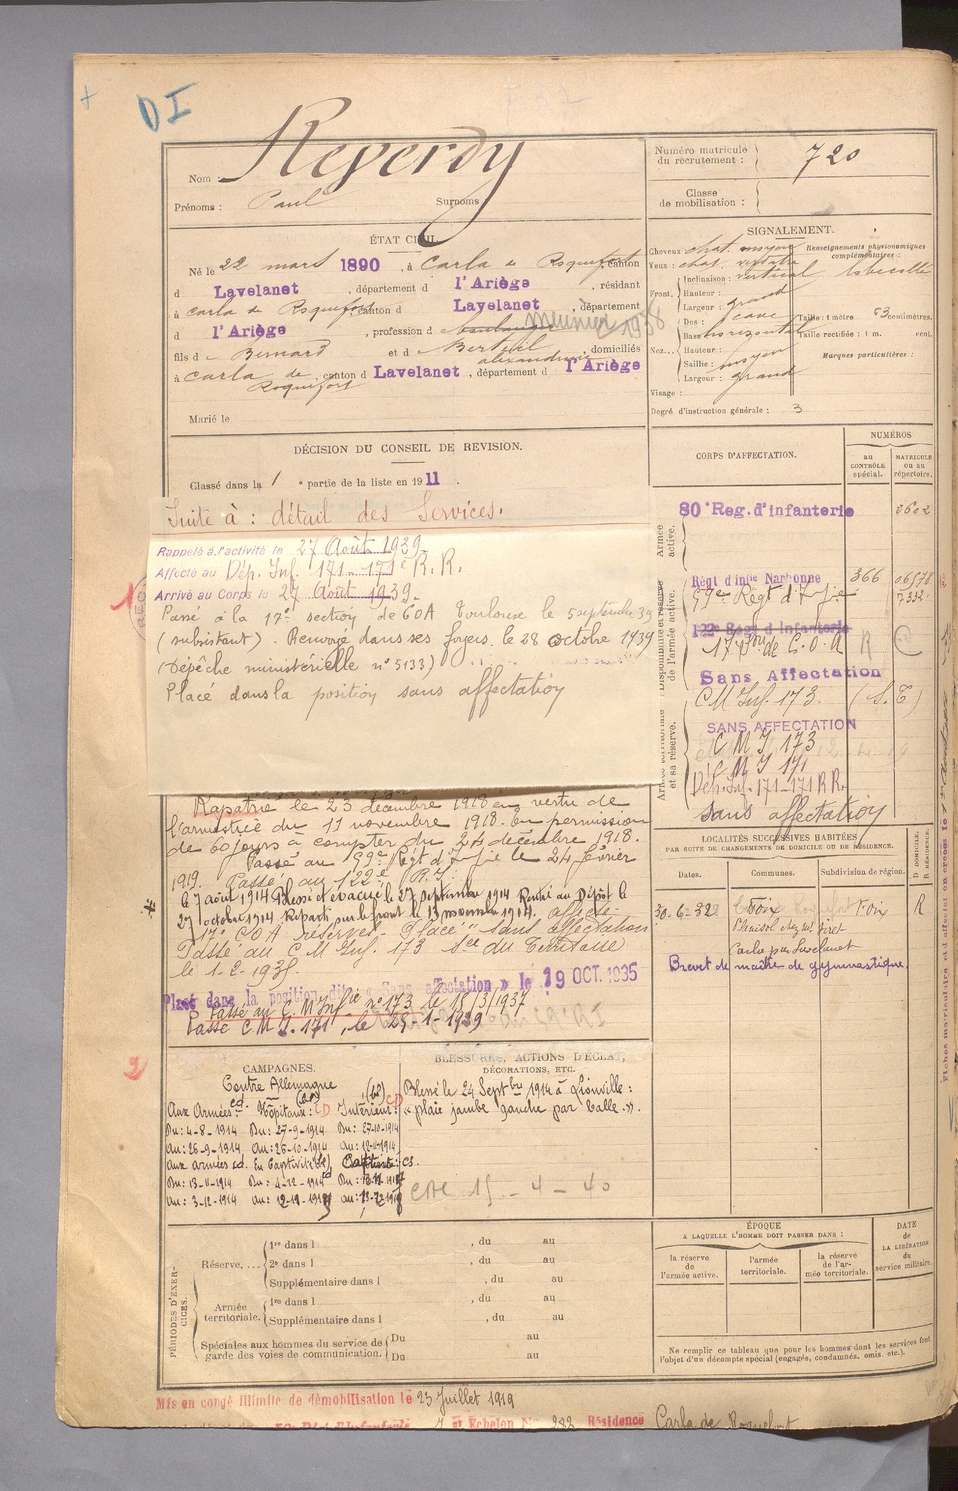 DI
Nom : Reverdy
Prénoms : Paul Surnoms :
Numéro matricule du recrutement : 720
Classe de mobilisation :
ÉTAT CIVIL.
Né le 22 mars 1890, à Carla de Roquefort, canton
d Lavelanet, département d l'Ariège, résidant
à Carla de Roquefort, canton d Lavelanet, département
d l'Ariège, profession d meunier 1938
fils d e Bernard et d domiciliés
à Carla de Roquefort, canton d Lavelanet, département d l'Ariège
Marié le
SIGNALEMENT.
Cheveux chat. moyen
Yeux : chat.
Renseignements physionomiques complémentaires :
Front. Inclinaison : vertical
Hauteur :
Largeur : grand
Nez... Dos : cave
Base horizontal
Hauteur :
Saillie : moyen
Largeur : grand
Taille : 1 mètre 63 centimètres.
Taille rectifiée : 1 m. cent.
Marques particulières :
Visage :
Degré d'instruction générale : 3
DÉCISION DU CONSEIL DE REVISION.
Classé dans la 1e partie de la liste en 1911.
Suite à : détail des Services.
Rappelé à l'activité le 27 Août 1939.
Affecté au Dép. Inf. 171-171e R. R.
Arrivé au Corps le 27 Août 1939.
Passé à la 17e section de COA Toulouse le 5 septembre 39
(subsistant). Renvoyé dans ses foyers le 28 octobre 1939
(Dépêche ministérielle n° 5133)
Placé dans la position sans affectation
Rapatrié le 23 décembre 1918 en vertu de
l'armistice du 11 novembre 1918. En permission
de 60 jours à compter du 24 décembre 1918.
Passé au 99e Régt d'Infie le 24 février
1919. Passé au 122e R.I.
le 7 août 1914 Blessé et évacué le 27 septembre 1914 Rentré au Dépôt le
27 octobre 1914 Reparti sur le front le 13 novembre 1914. affecté
17e COA réserves - Placé "sans affectation
Passé au C M Inf. 173 Sce du Territoire
le 1-2-1935.
Placé dans la position dite « Sans affectation » le 19 OCT. 1935
Passé au C. M. Infie n° 173 le 18/3/1937
Passé C M I. 171, le 25-1-1939
CORPS D'AFFECTATION.
NUMÉROS
au CONTRÔLE spécial.
MATRICULE ou au répertoire.
Armée active.
80e Reg. d'infanterie
Disponibilité et réserve de l'armée active.
Régt d'infie Narbonne 366
99e Régt d'Infie
122e Régt d'infanterie
17e Son de C.O.A R
Sans Affectation
Armée territoriale et sa réserve.
C M Inf. 173. (S. T)
SANS AFFECTATION
C M I. 173
C M I 171
Dép. Inf. 171-171 R R.
sans affectation
LOCALITÉS SUCCESSIVES HABITÉES
PAR SUITE DE CHANGEMENTS DE DOMICILE OU DE RÉSIDENCE.
Dates. Communes. Subdivision de région. D DOMICILE. R RÉSIDENCE.
30-6-32 Foix Foix R
Carla par Lavelanet
Brevet de maître de gymnastique.
CAMPAGNES.
Contre Allemagne
Aux Armées Hôpitaux : Intérieur :
Du : 4-8-1914 Du : 27-9-1914 Du : 27-10-1914
Au : 26-9-1914 Au : 26-10-1914 Au : 12-11-1914
Aux armées En Captivité
Du : 13-11-1914 Du : 4-12-1914
Au : 3-12-1914
BLESSURES, ACTIONS D'ÉCLAT, DÉCORATIONS, ETC.
Blessé le 24 Septbre 1914 à Lionville :
"plaie jambe gauche par balle".
15 - 4 - 40
PÉRIODES D'EXERCICES.
Réserve.... 1re dans l , du au
2e dans l , du au
Supplémentaire dans l , du au
Armée territoriale. 1re dans l , du au
Supplémentaire dans l , du au
Spéciales aux hommes du service de garde des voies de communication. Du au
Du au
ÉPOQUE
A LAQUELLE L'HOMME DOIT PASSER DANS :
la réserve de l'armée active.
l'armée territoriale.
la réserve de l'armée territoriale.
DATE de LA LIBÉRATION du service militaire.
Ne remplir ce tableau que pour les hommes dont les services font l'objet d'un décompte spécial (engagés, condamnés, omis, etc.).
Mis en congé illimité de démobilisation le 23 Juillet 1919
Echelon No 282 Résidence Carla de Roquefort